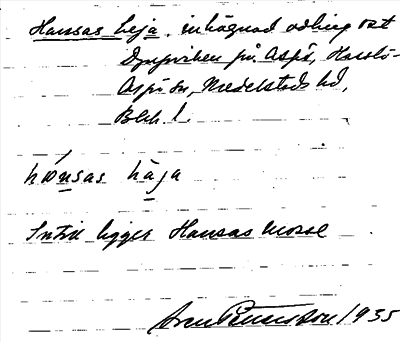 Hansas heja, inhägnad odling ost
Djupviken på Aspö, Hasslö-
Aspö sn, Medelstads hd,
Blek. l.
hansas häja
Intill ligger Hansas mosse
1935